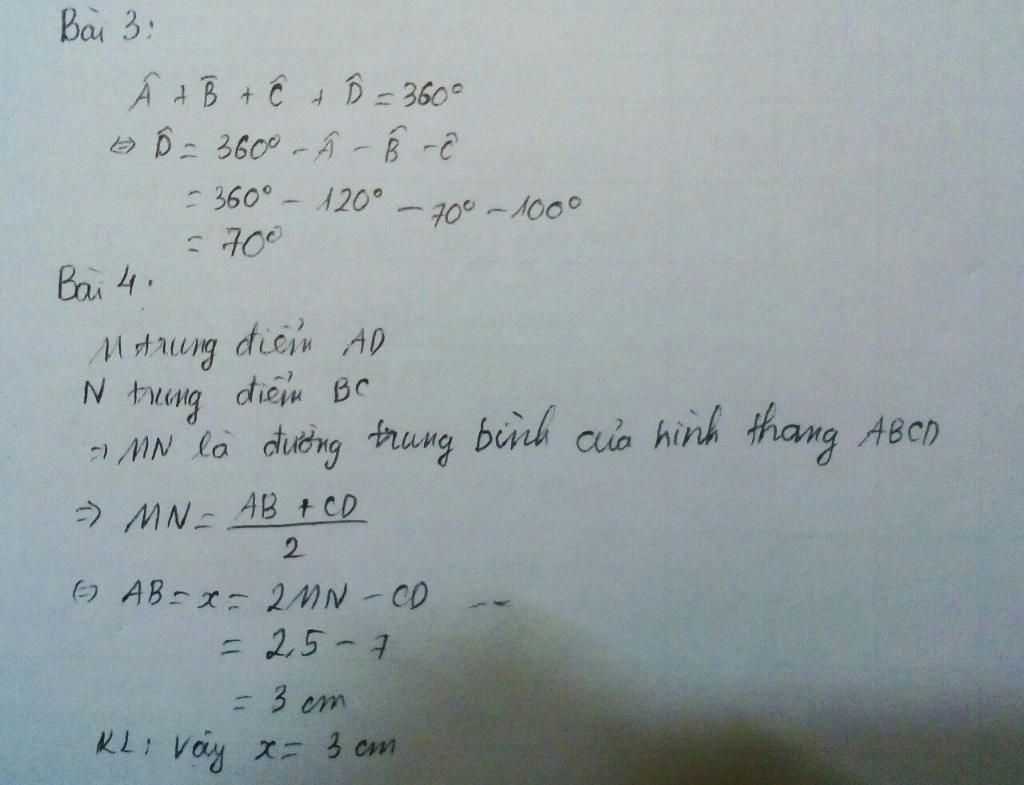 Bài 3:
Â + B̂ + Ĉ + D̂ = 360°
⇔ D̂ = 360° - Â - B̂ - Ĉ
= 360° - 120° - 70° - 100°
= 70°
Bài 4.
M trung điểm AD
N trung điểm BC
⇒ MN là đường trung bình của hình thang ABCD
⇒ MN = (AB + CD)/2
⇔ AB = x = 2MN - CD --
= 2.5 - 7
= 3 cm
KL: vậy x = 3 cm